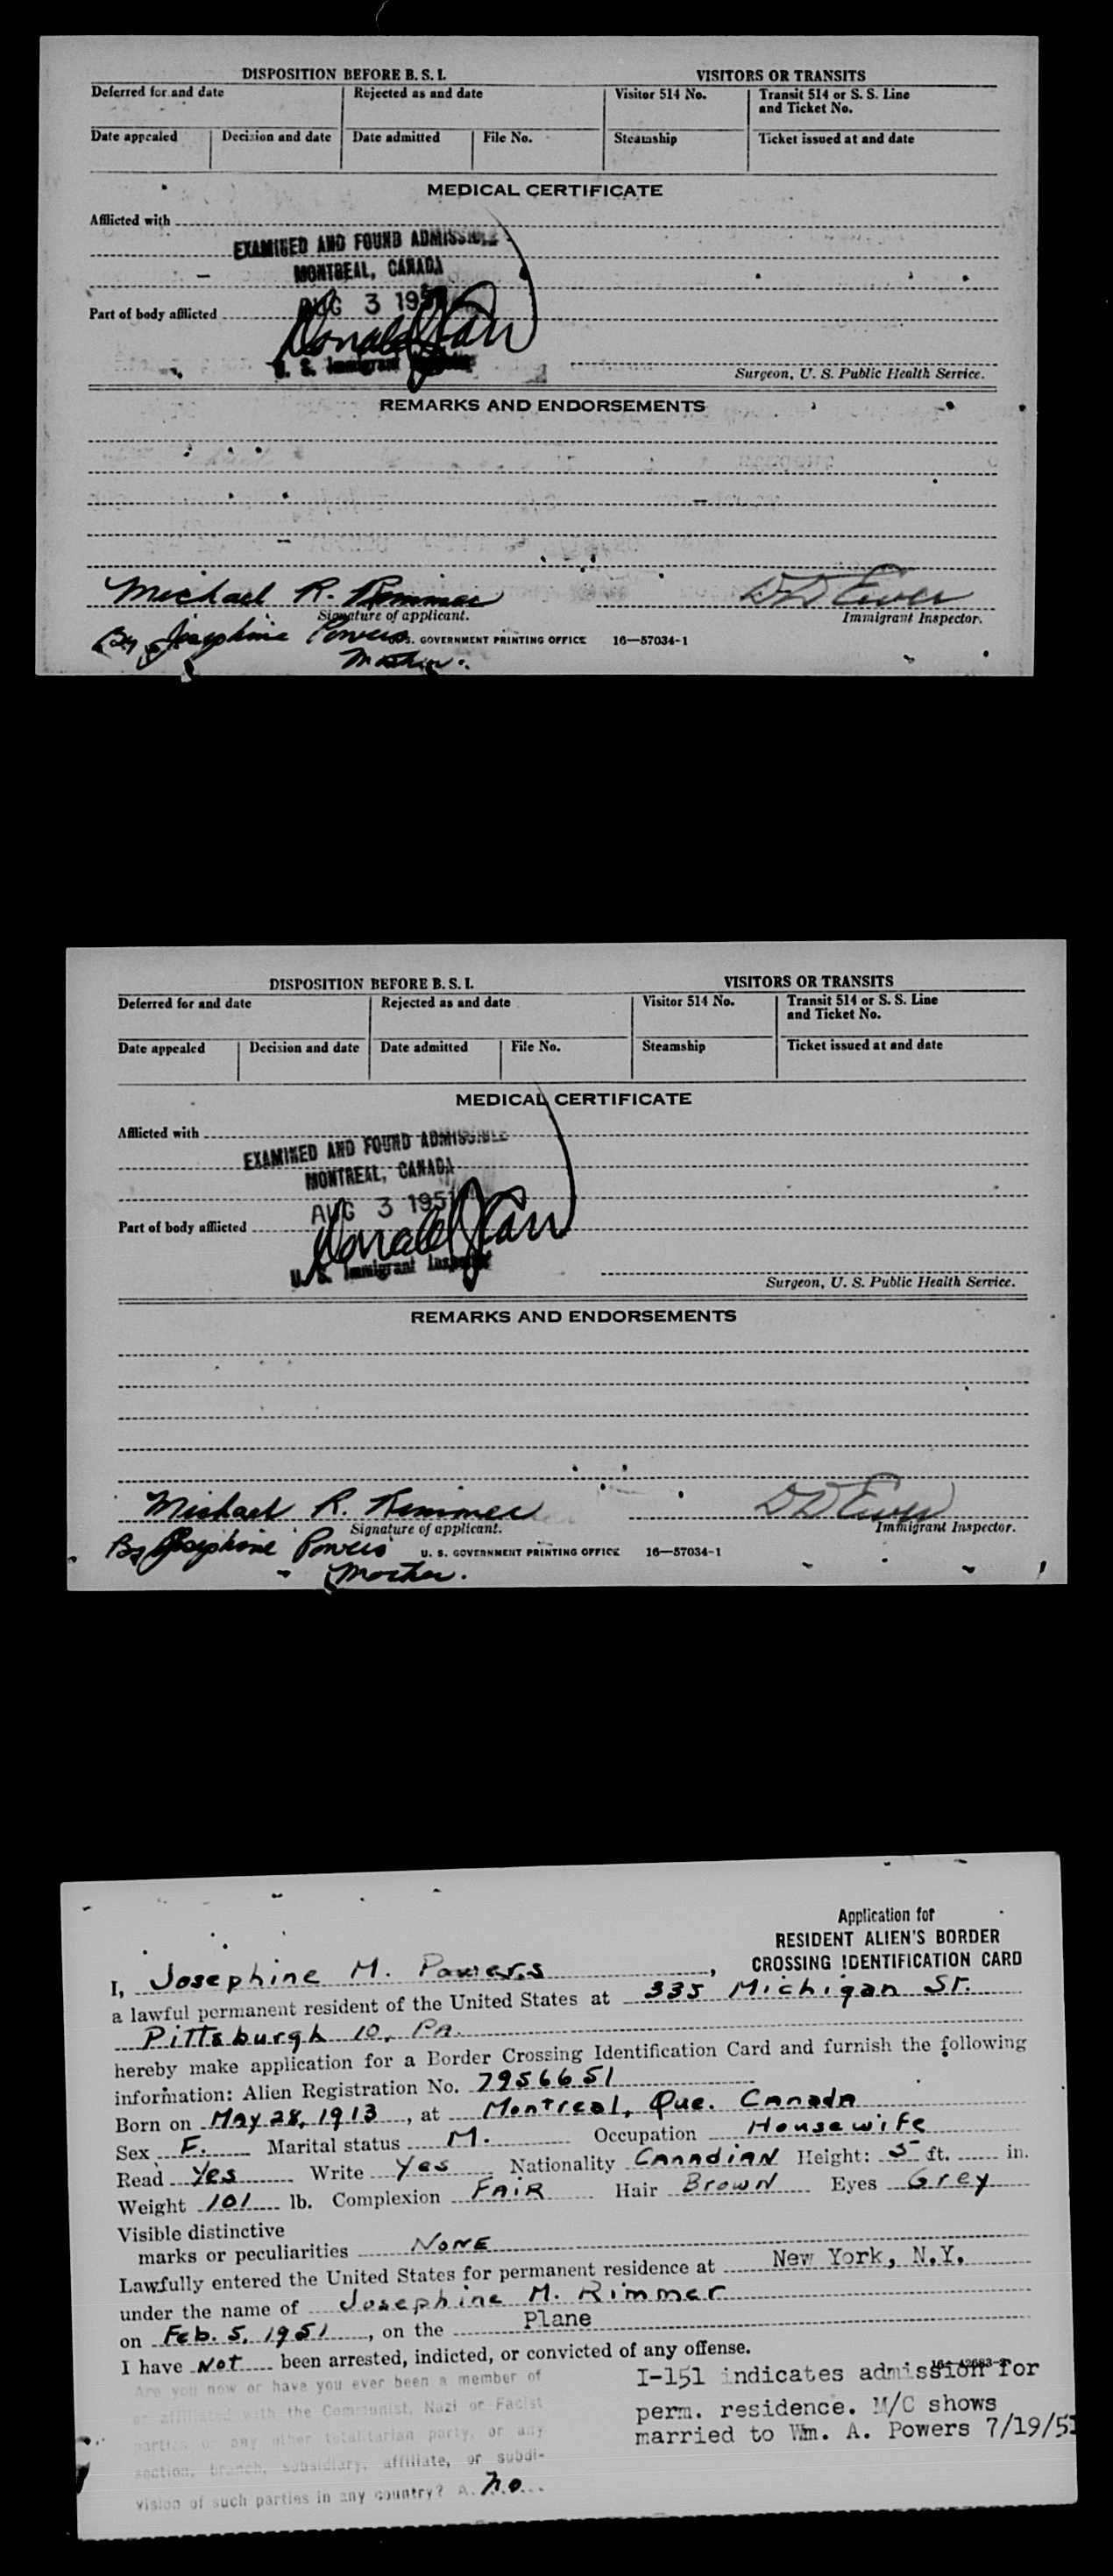 DISPOSITION BEFORE B. S. I. VISITORS OR TRANSITS
Deferred for and date Rejected as and date Visitor 514 No. Transit 514 or S. S. Line
and Ticket No.
Date appealed Decision and date Date admitted File No. Steamship Ticket issued at and date
MEDICAL CERTIFICATE
Afflicted with
EXAMINED AND FOUND ADMISSIBLE
MONTREAL, CANADA
AUG 3 195
Part of body afflicted
U. S. Immigrant
Surgeon, U. S. Public Health Service.
REMARKS AND ENDORSEMENTS
Michael R. Rimmer
Signature of applicant. Immigrant Inspector.
By Josephine Powers U. S. GOVERNMENT PRINTING OFFICE 16—57034-1
Mother.
DISPOSITION BEFORE B. S. I. VISITORS OR TRANSITS
Deferred for and date Rejected as and date Visitor 514 No. Transit 514 or S. S. Line
and Ticket No.
Date appealed Decision and date Date admitted File No. Steamship Ticket issued at and date
MEDICAL CERTIFICATE
Afflicted with
EXAMINED AND FOUND ADMISSIBLE
MONTREAL, CANADA
AUG 3 1951
Part of body afflicted
U. S. Immigrant Inspector
Surgeon, U. S. Public Health Service.
REMARKS AND ENDORSEMENTS
Michael R. Rimmer
Signature of applicant. Immigrant Inspector.
By Josephine Powers U. S. GOVERNMENT PRINTING OFFICE 16—57034-1
Mother.
Application for
RESIDENT ALIEN'S BORDER
CROSSING IDENTIFICATION CARD
I, Josephine M. Powers,
a lawful permanent resident of the United States at 335 Michigan St.
Pittsburgh 10, PA.
hereby make application for a Border Crossing Identification Card and furnish the following
information: Alien Registration No. 7956651
Born on May 28, 1913, at Montreal, Que. Canada
Sex F. Marital status M. Occupation Housewife
Read Yes Write Yes Nationality Canadian Height: 5 ft. in.
Weight 101 lb. Complexion FAIR Hair Brown Eyes Grey
Visible distinctive
marks or peculiarities NONE
Lawfully entered the United States for permanent residence at New York, N.Y.
under the name of Josephine M. Rimmer
on Feb. 5, 1951, on the Plane
I have Not been arrested, indicted, or convicted of any offense.
Are you now or have you ever been a member of
or affiliated with the Communist, Nazi or Facist
parties or any other totalitarian party, or any
section, branch, subsidiary, affiliate, or subdi-
vision of such parties in any country? A. No
I-151 indicates admission for
perm. residence. M/C shows
married to Wm. A. Powers 7/19/51